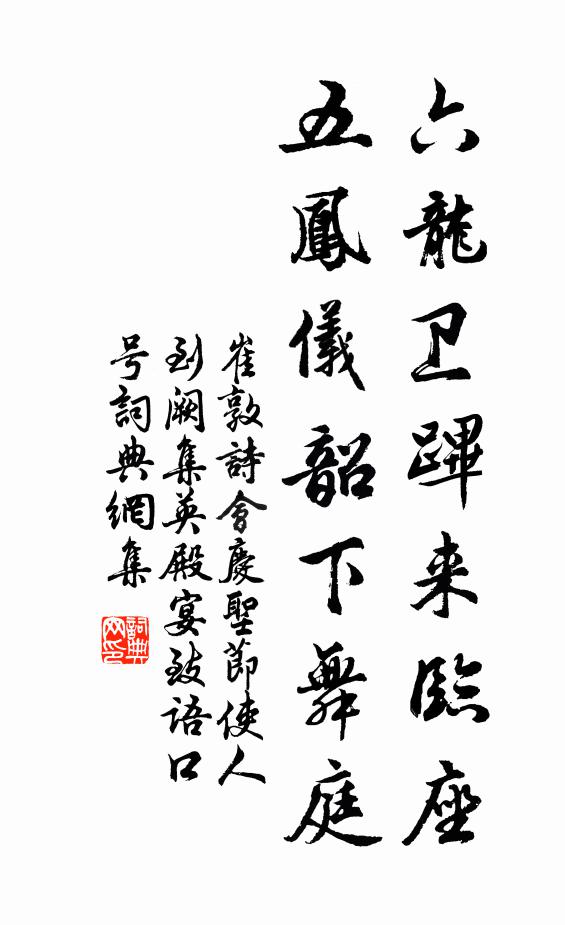 六龍卫蹕来臨座
五鳳儀韶下舞庭
崔敦詩会慶聖節使人
到阙集英殿宴致語口
号詞典網集
詞典网印